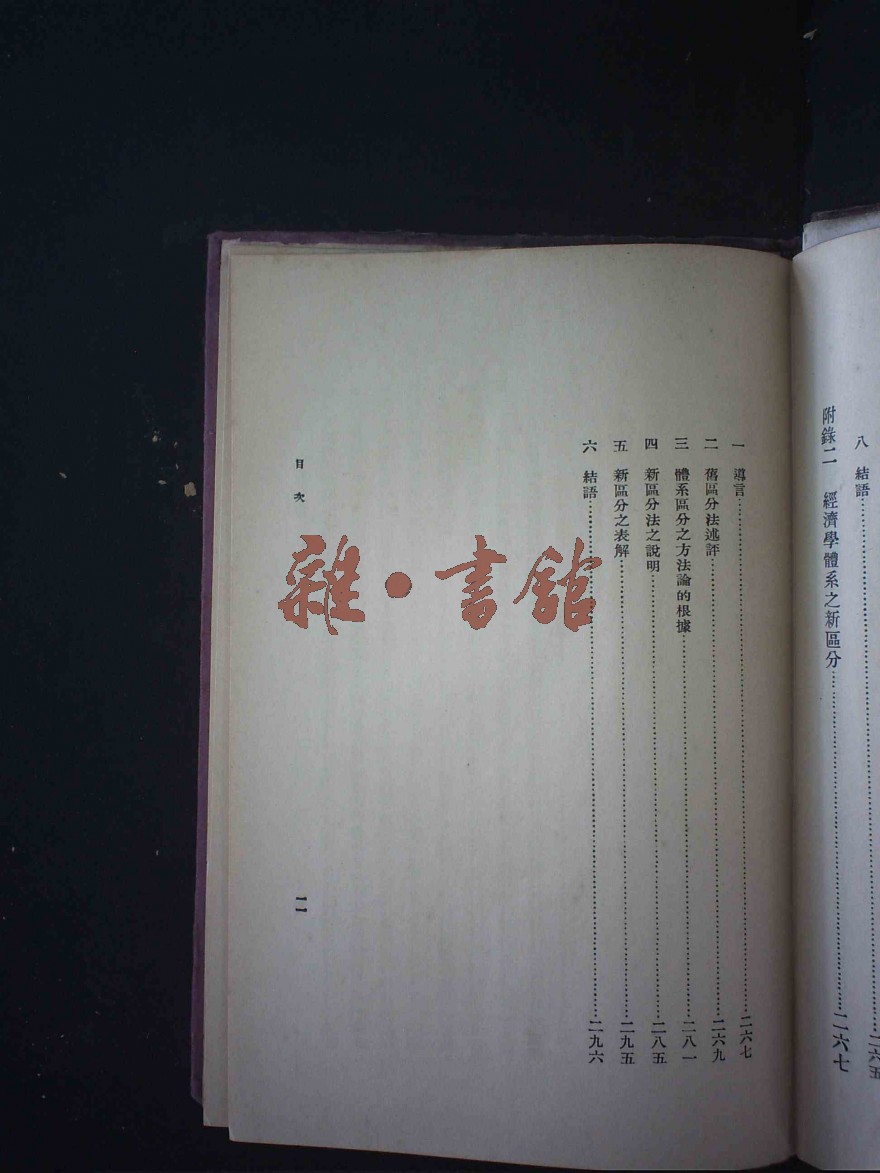 八　結語……二六五
附錄二　經濟學體系之新區分……二六七
一　導言……二六七
二　舊區分法述評……二六九
三　體系區分之方法論的根據……二八一
四　新區分法之說明……二八五
五　新區分之表解……二九五
六　結語……二九六
目次
一一
雜·書館